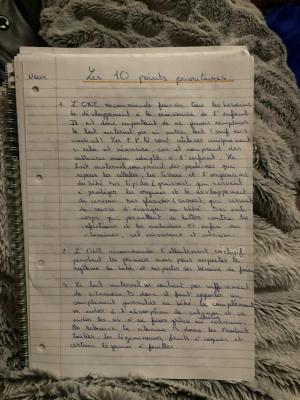 Les 10 points prioritaires
1. L'ONE recommande favoriser tous les besoins
de développement à la croissance de l'enfant
Il est donc important de ne jamais remplacer
le lait maternel par un autre lait (sauf avis
médical). Les P.P.N sont utilisées uniquement
si cela est nécessaire, car il comprend des
substances moins adapté à l'enfant. Le
lait maternel contient des protéines qui
les cellules, les tissus et l'organisme
du bébé. Des lipides (graisses), qui servent
à protéger les organes et le développement
du cerveau. Des glucides (sucres), qui servent
de source d'énergie au bébé. Des anti-
corps qui permettent de lutter contre les
infections et les maladies. Et enfin des
vitamines, sel minéraux et calcium.
2. L'ONE recommande l'allaitement exclusif
pendant les premier mois pour respecter le
rythme de bébé et respecter ses besoins de faim
3. Le lait maternel ne contient pas suffisamment
de vitamines D donc il faut apporter un
complément journalier au bébé. Ce complément
va aider à l'absorption de calcium et va
aider les os à se fixer grâce au calcium.
On retrouve la vitamine D dans les produits
laitiers, les légumineuses, fruits à coques et
certain légumes à feuilles